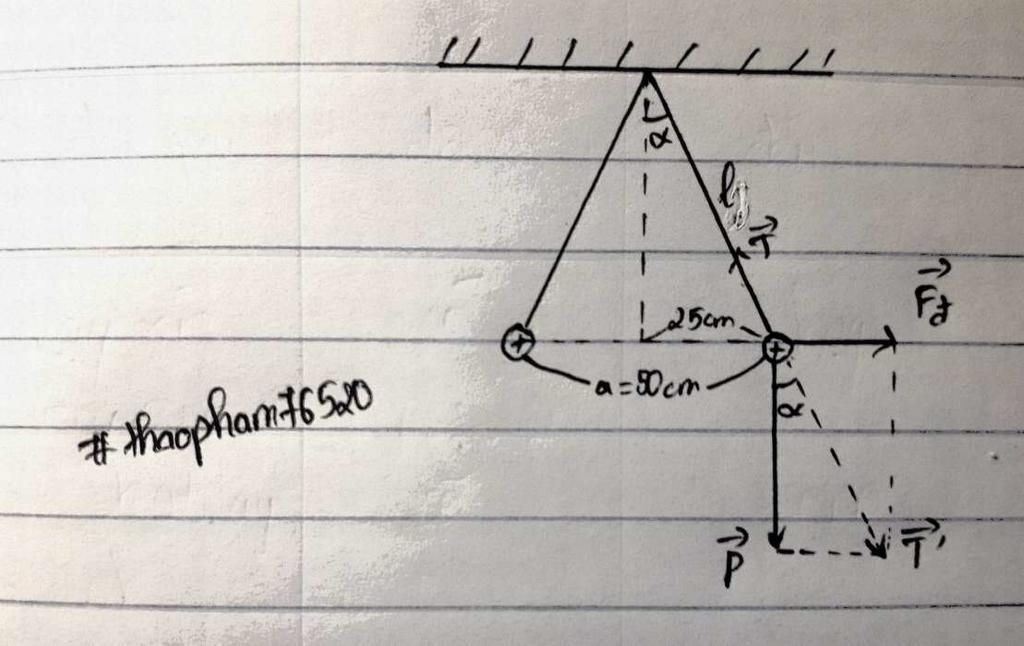 α
l
T
25cm
Fđ
a=50cm
#thaopham76520
α
P
T'